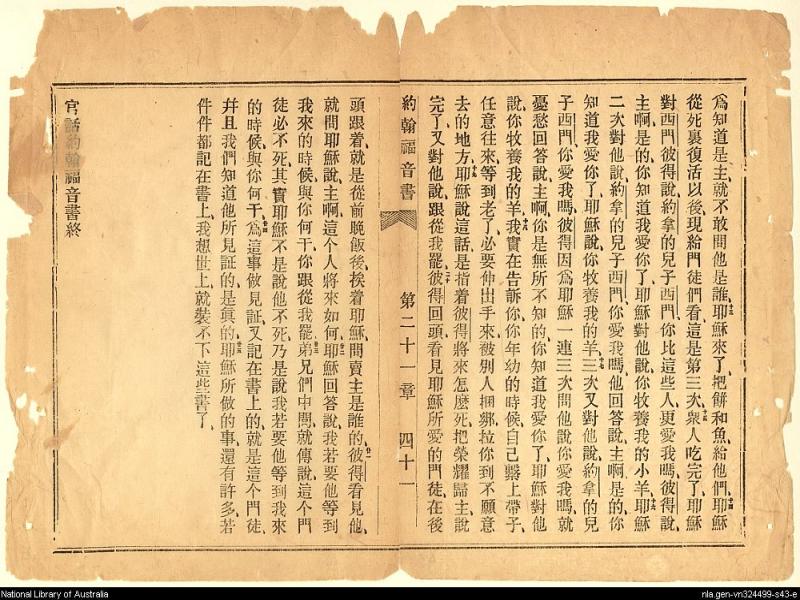 爲知道是主、就不敢問他是誰、耶穌來了、把餠和魚給他們、耶穌
從死裏復活以後、現給門徒們看、這是第三次、衆人吃完了、耶穌
對西門彼得說、約拿的兒子西門、你比這些人、更愛我嗎、彼得說、
主啊、是的、你知道我愛你了、耶穌對他說、你牧養我的小羊、耶穌
二次對他說、約拿的兒子西門、你愛我嗎、他回答說、主啊、是的、你
知道我愛你了、耶穌說、你牧養我的羊、三次又對他說、約拿的兒
子西門、你愛我嗎、彼得因爲耶穌一連三次問他說、你愛我嗎、就
憂愁回答說、主啊、你是無所不知的、你知道我愛你了、耶穌對他
說、你牧養我的羊、我實在告訴你、你年幼的時候、自己繫上帶子、
任意往來、等到老了、必要伸出手來、被別人捆鄉、拉你到不願意
去的地方、耶穌說這話、是指着彼得將來怎麽死、把榮耀歸主、說
完了、又對他說、跟從我罷、彼得回頭、看見耶穌所愛的門徒、在後
約翰福音書 第二十一章 四十一
頭跟着、就是從前晚飯後、挨着耶穌、問賣主是誰的、彼得看見他、
就問耶穌說、主啊、這个人將來如何、耶穌回答說、我若要他等到
我來的時候、與你何干、你跟從我罷、弟兄們中間、就傳說、這个門
徒必不死、其實耶穌不是說他不死、乃是說我若要他等到我來
的時候、與你何干、爲這事做見証、又記在書上的、就是這个門徒、
幷且我們知道他所見証的是眞的、耶穌所做的事、還有許多、若
件件都記在書上、我想世上就裝不下這些書了、
官話約翰福音書終
National Library of Australia
nla.gen-vn324499-s43-e